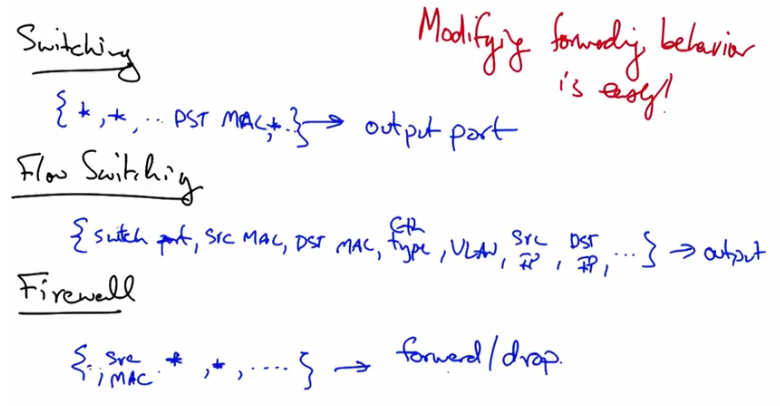 Switching
Modifying forwarding behavior
is easy!
{ *, *, ... DST MAC, *. } → output port
Flow Switching
{ switch port, SRC MAC, DST MAC, Eth type, VLAN, Src IP, DST IP, ... } → output
Firewall
{ ., Src MAC * , *, .... } → forward/drop.